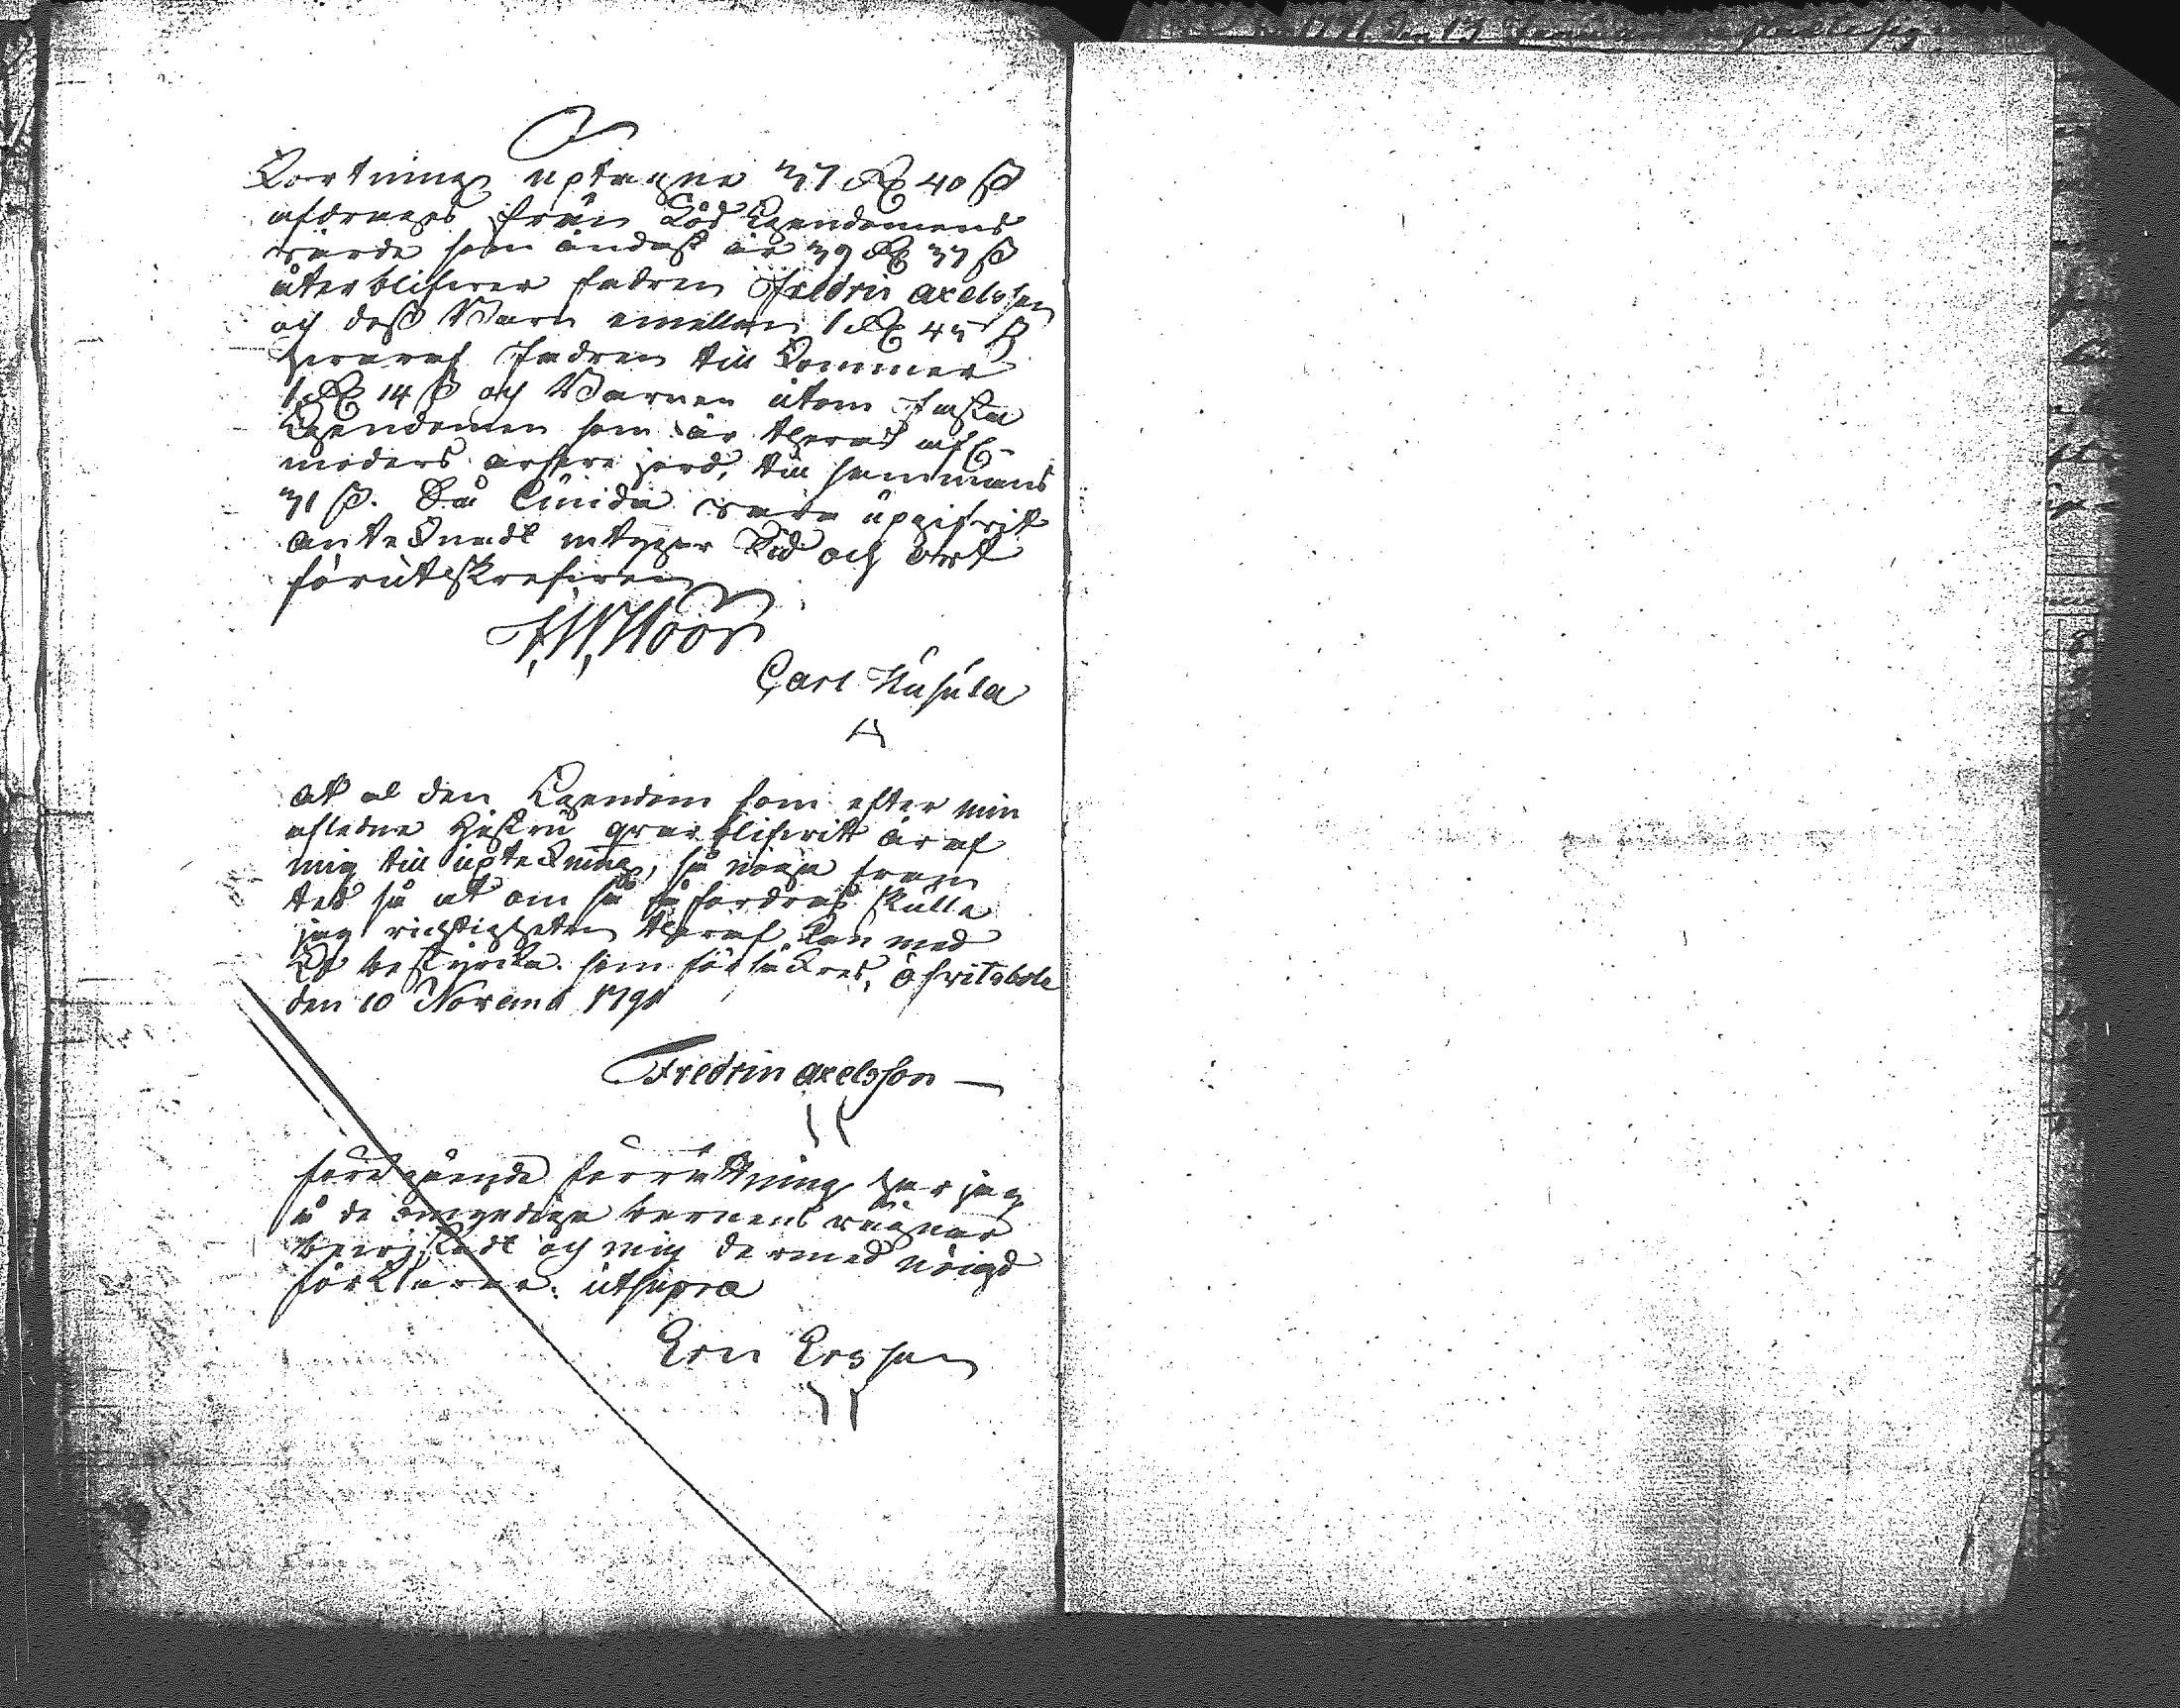 Kortning uptagne 37 Rd 40 ß
afdrages från Lös Egendomens
värde som endast är 39 Rd 37 ß
återblifver fadren Fredric Axelsson
och dess Barn emellan 1 Rd 45 ß
hvaraf Fadren till kommer
1 Rd 14 ß och Barnen utom fasta
Egendomen som är theras afl.
moders arfvejord, till sammans
31 ß. Så lunda vara upgifvit
antecknadt intygar Tid och Ort
förutskrefven
Carl Kusula
At al den Egendom som efter min
afledne Hustru qvarblifvit är af
mig till upteckning, så noga fram
ted så at om så fordras skulle
jag richtigheten theraf kan med
Ed bestyrcka. som försäkras, Öfvitsbole
den 10 Novemb 1791
Fredrin Axelsson
föregående förrättning har jag
å de omyndiga barnens vägnar
bevistadt och mig dermed nöigd
förklarar. utsupra
Eric Ersson